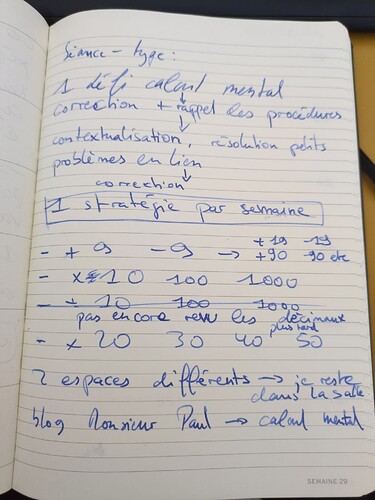 Séance - type :
1 défi calcul mental
correction + rappel les procédures
contextualisation, résolution petits
problèmes en lien
correction
1 stratégie par semaine
- + 9 - 9 → + 19 - 19
+ 90 - 90 etc
- x 10 100 1000
- ÷ 10 100 1000
pas encore revu les décimaux
plus tard
- x 20 30 40 50
2 espaces différents → je reste
dans la salle
blog Monsieur Paul → calcul mental
SEMAINE 29